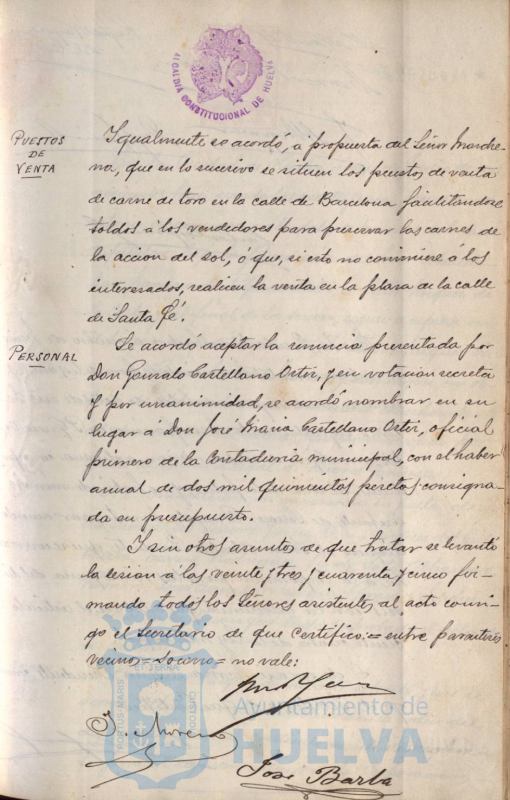 ALCALDIA CONSTITUCIONAL DE HUELVA
PUESTOS
DE
VENTA
Igualmente se acordó, á propuesta del Señor Marche-
na, que en lo sucesivo se situen los puestos de venta
de carne de toro en la calle de Barcelona facilitandose
toldos á los vendedores para preservar las carnes de
la accion del sol, ó que, si esto no conviniere á los
interesados, realicen la venta en la plaza de la calle
de Santa Fé.
PERSONAL
Se acordó aceptar la renuncia presentada por
Don Gonzalo Castellano Ortiz, y en votacion secreta
y por unanimidad, se acordó nombrar en su
lugar á Don José Maria Castellano Ortiz, oficial
primero de la Contaduria municipal, con el haber
anual de dos mil quinientas pesetas consigna-
da en presupuesto.
Y sin otros asuntos de que tratar se levantó
la sesion á las veinte y tres y cuarenta y cinco fir-
mando todos los Señores asistentes al acto conmi-
go el Secretario de que certifico:= entre parentesis
vecino= = no vale:
J. Moreno
José Barba
PORTUS MARIS
ET TERRÆ
CUSTODIA
Ayuntamiento de
HUELVA